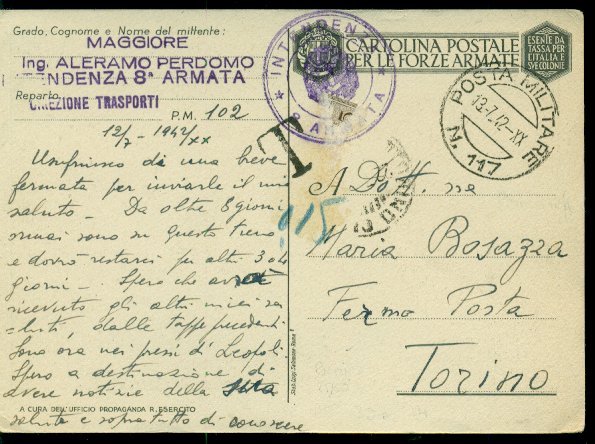 Grado, Cognome e Nome del mittente:
MAGGIORE
Ing. ALERAMO PERDOMO
TENDENZA 8ª ARMATA
Reparto
DIREZIONE TRASPORTI
P.M. 102
12/7 - 1942/XX
Usufruisco di una breve
fermata per inviarle il mio
saluto - Da oltre 8 giorni
ormai sono su questo treno
e dovrò restarci per altri 3 o 4
giorni - Spero che avrà
ricevuto gli altri miei sa
luti, dalle tappe precedenti
Sono ora nei pressi di Leopoli
Spero a destinazione di
avere notizie della sua
salute e sopratutto di conoscere
A CURA DELL'UFFICIO PROPAGANDA R. ESERCITO
INTENDENZA
8ª ARMATA
CARTOLINA POSTALE
PER LE FORZE ARMATE
ESENTE DA
TASSA PER
L'ITALIA E
SVE COLONIE
POSTA MILITARE
13-7-42-XX
N. 117
T
A Dott. ssa
Maria Bosazza
Fermo Posta
Torino